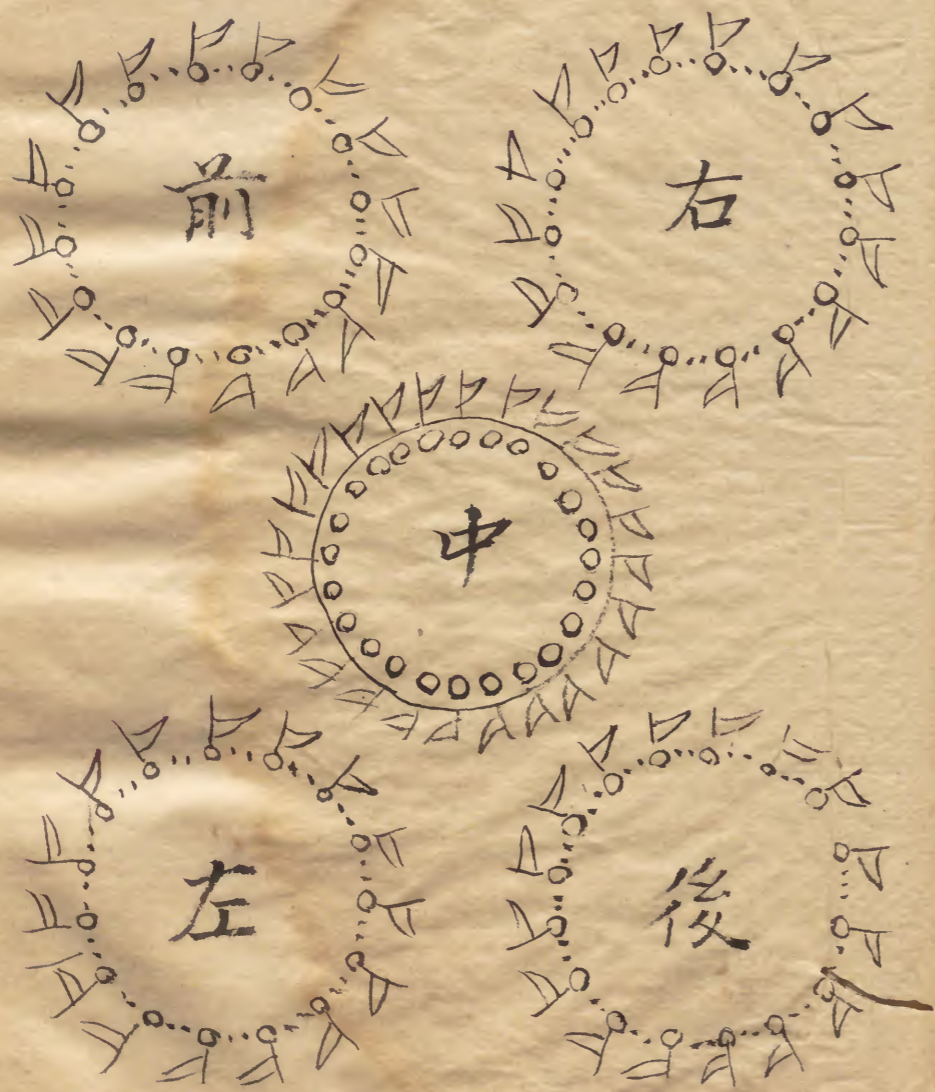 前
右
中
左
後